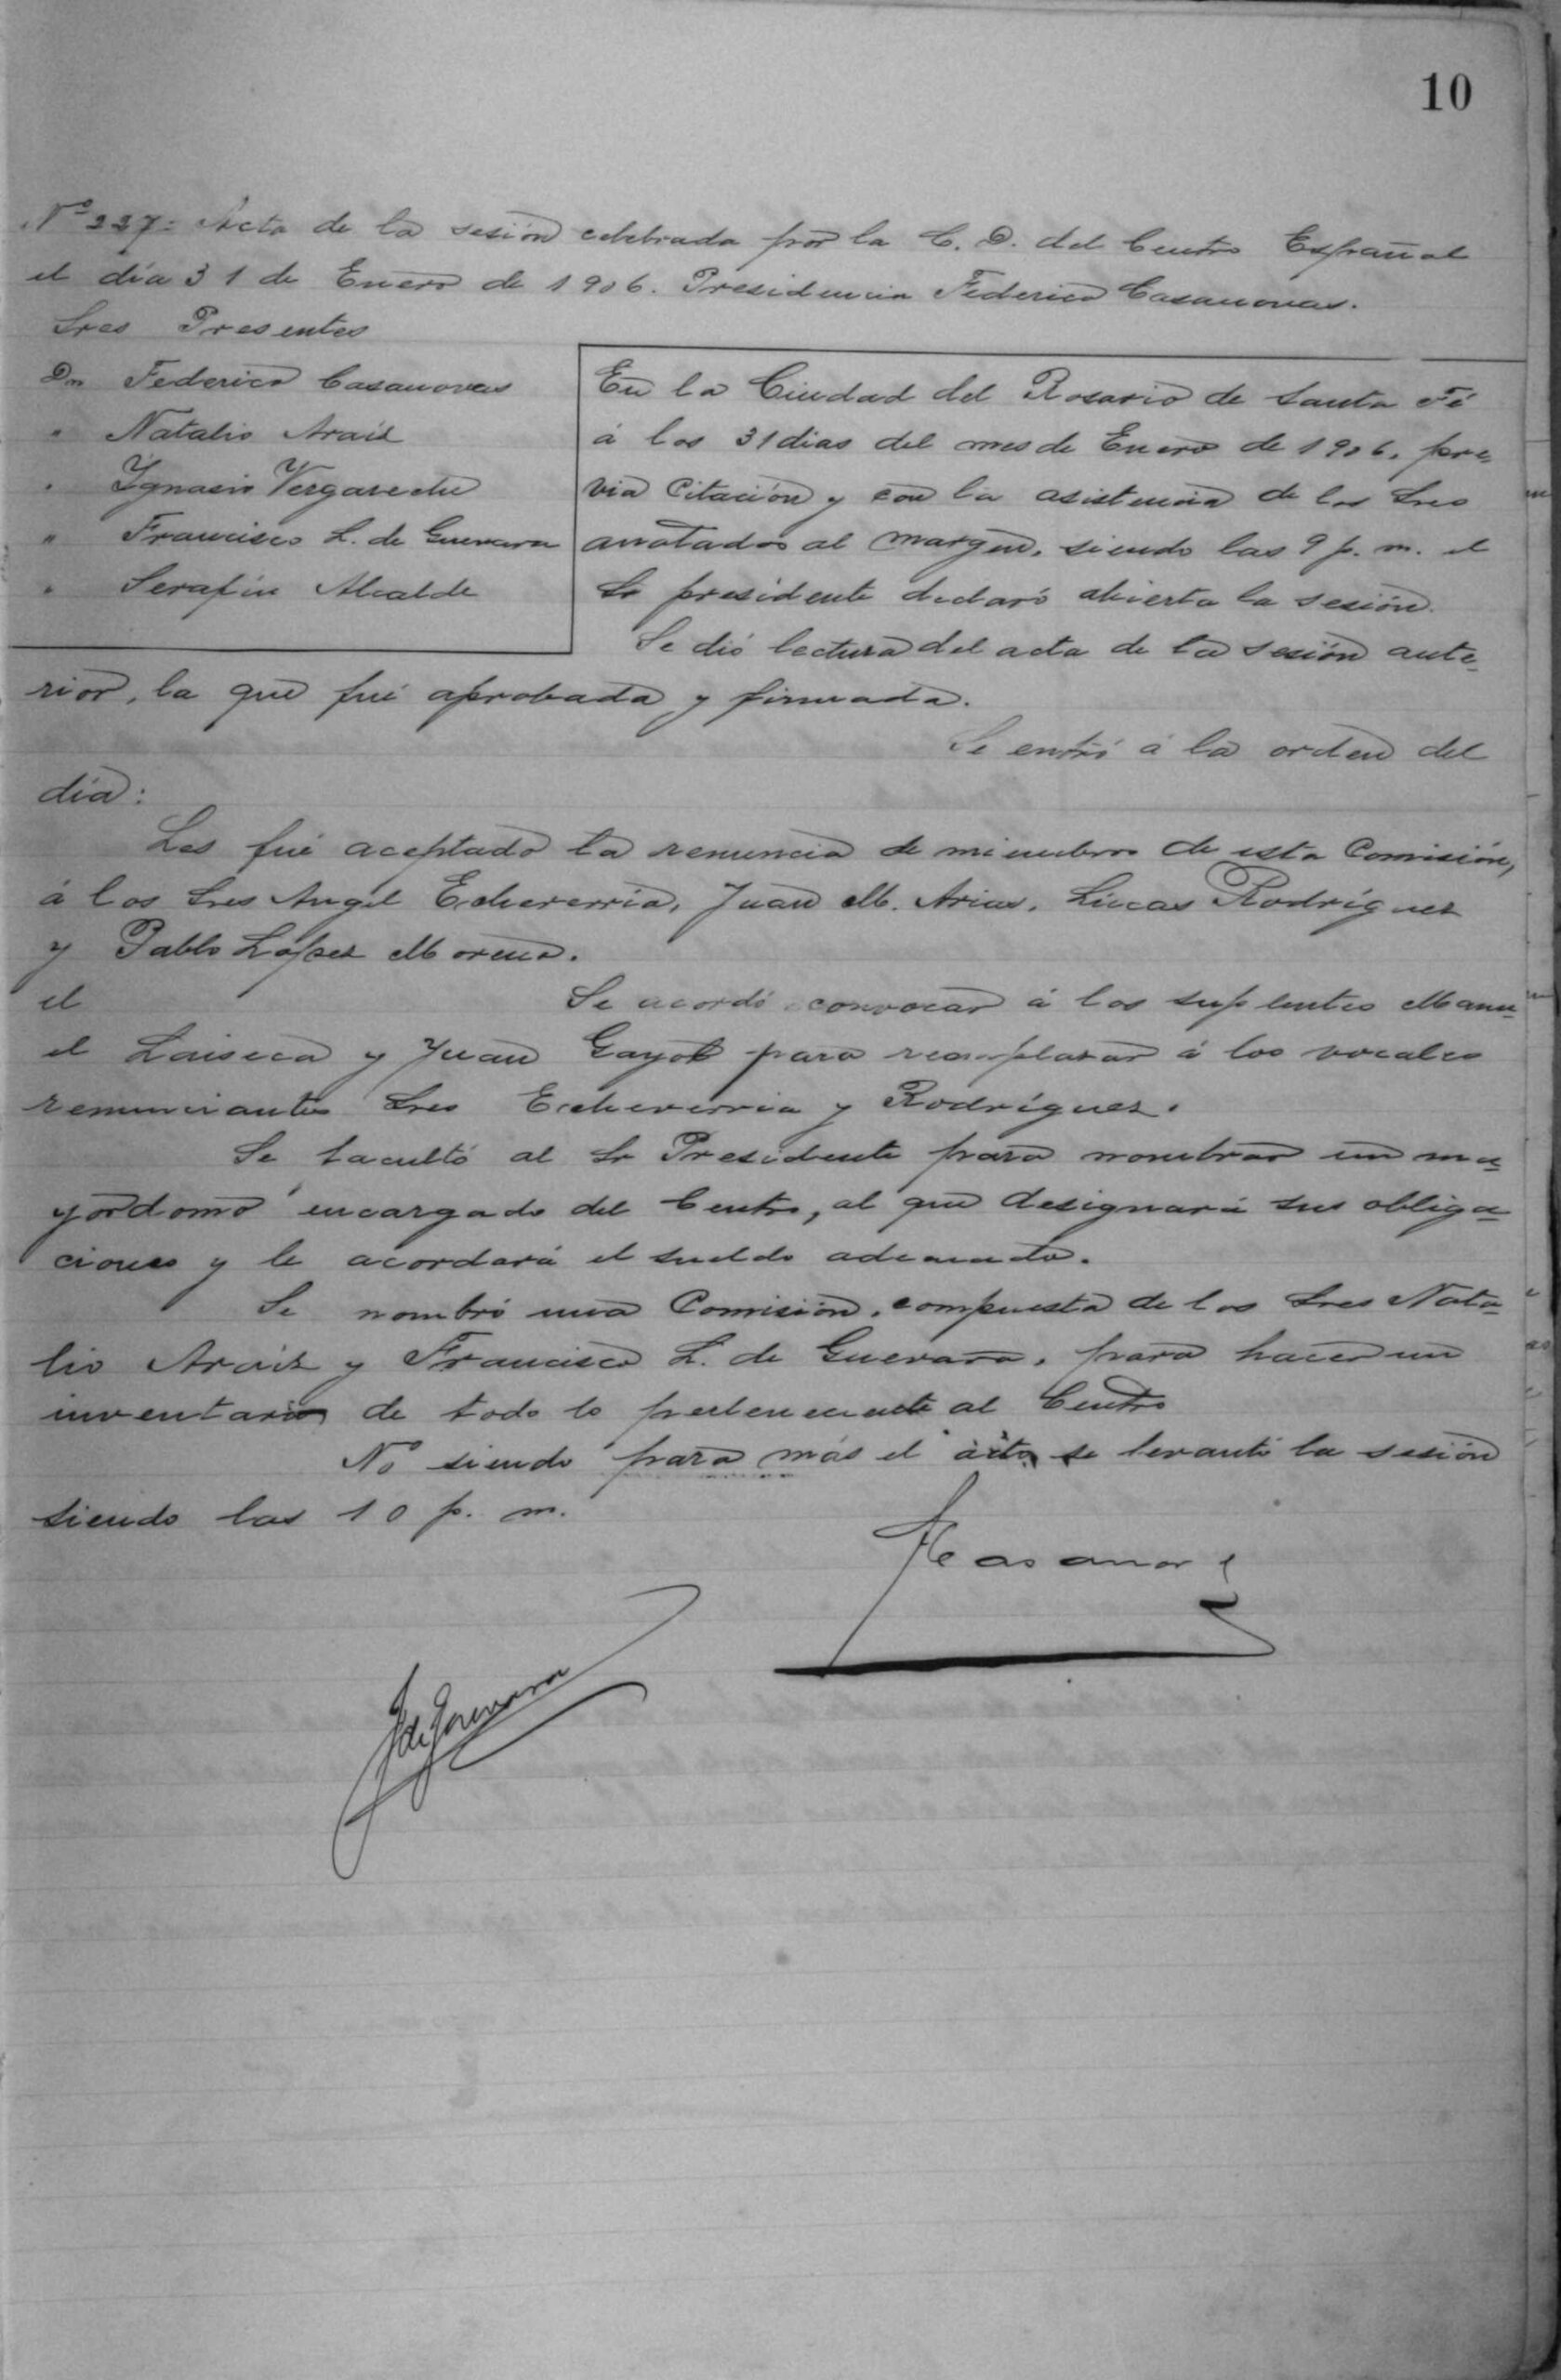 10
Nº 227= Acta de la sesión celebrada por la C. D. del Centro Español
el día 31 de Enero de 1906. Presidencia Federico Casanovas.
Sres Presentes
Dn Federico Casanovas
" Natalio Araiz
" Ygnacio Vergareche
" Francisco L. de Guevara
" Serafin Alcalde
En la Ciudad del Rosario de Santa Fé
á los 31 dias del mes de Enero de 1906. pre-
via Citación y con la asistencia de los Sres
anotados al margen, siendo las 9 p. m. el
Sr presidente declaró abierta la sesión.
Se dió lectura del acta de la sesión ante-
rior, la que fué aprobada y firmada.
Se entró á la orden del
día:
Les fué aceptado la renuncia de miembros de esta Comisión,
á los Sres Angel Echeverria, Juan M. Arias, Lúcas Rodríguez
y Pablo López Moreno.
el Se acordó convocar á los suplentes Manu-
el Laiseca y Juan Gayol para reemplazar á los vocales
renunciantes Sres Echeverria y Rodríguez.
Se facultó al Sr Presidente para nombrar un ma-
yordomo encargado del Centro, al que designará sus obliga-
ciones y le acordará el sueldo adecuado.
Se nombró una Comisión, compuesta de los Sres Nata-
lio Araiz y Francisco L. de Guevara, para hacer un
inventario de todo lo perteneciente al Centro
No siendo para más el acto se levantó la sesión
siendo las 10 p. m.
FCasanovas
LdeGuevara